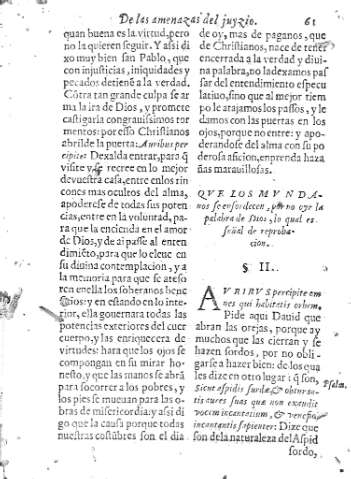 De las amenazas del juyzio. 61
quan buena es la virtud, pero
no la quieren seguir. Y assi di
xo muy bien san Pablo, que
con injusticias, iniquidades y
pecados detienē a la verdad.
Cōtra tan grande culpa se ar
ma la ira de Dios, y promete
castigarla con grauissimos tor
mentos: por esso Christianos
abrilde la puerta: Auribus per
cipite: Dexalda entrar, para q̃
visite y se recree en lo mejor
de vuestra casa, entre en los rin
cones mas ocultos del alma,
apoderese de todas sus poten
cias, entre en la voluntad, pa-
ra que la encienda en el amor
de Dios, y de ai passe al enten
dimiēto, para que lo eleue en
su diuina contemplacion, y a
la memoria para que se ateso-
ren en ella los soberanos bene
ficios: y en estando en lo inte-
rior, ella gouernara todas las
potencias exteriores del cuer
cuerpo, y las enriquecera de
virtudes: hara que los ojos se
compongan en su mirar ho-
nesto, y que las manos se abrā
para socorrer a los pobres, y
los pies se mueuan para las o-
bras de misericordia: y assi di
go que la causa porque todas
nuestras costūbres son el dia
de oy, mas de paganos, que
de Christianos, nace de tener
encerrada a la verdad y diui-
na palabra, no la dexamos pas
sar del entendimiento especu
latiuo, sino que al mejor tiem
po le atajamos los passos, y le
damos con las puertas en los
ojos, porque no entre: y apo-
derandose del alma con su po
derosa aficion, emprenda haza
ñas marauillosas.
QVE LOS MVNDA-
nos se ensordecen, por no oyr la
palabra de Dios, lo qual es
señal de reproba-
cion.
§ II.
AVRIBVS percipite om
nes qui habitatis orbem.
Pide aqui Dauid que
abran las orejas, porque ay
muchos que las cierran y se
hazen sordos, por no obli-
garse a hazer bien: de los qua
les dize en otro lugar: q̃ son,
Sicut aspidis surdæ, & obturan
tis aures suas que non exaudit
vocem incantantium, & venefici
incantantis sapienter: Dize que
son de la naturaleza del Aspid
sordo,
Psal.